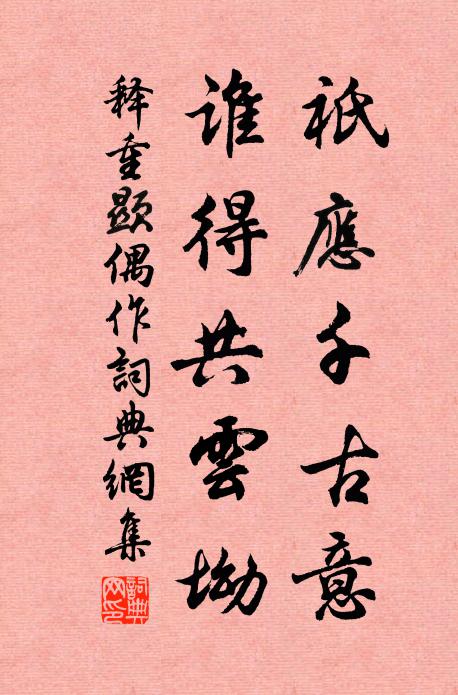 祇應千古意
誰得共雲坳
释重顯偶作詞典網集
詞典網印